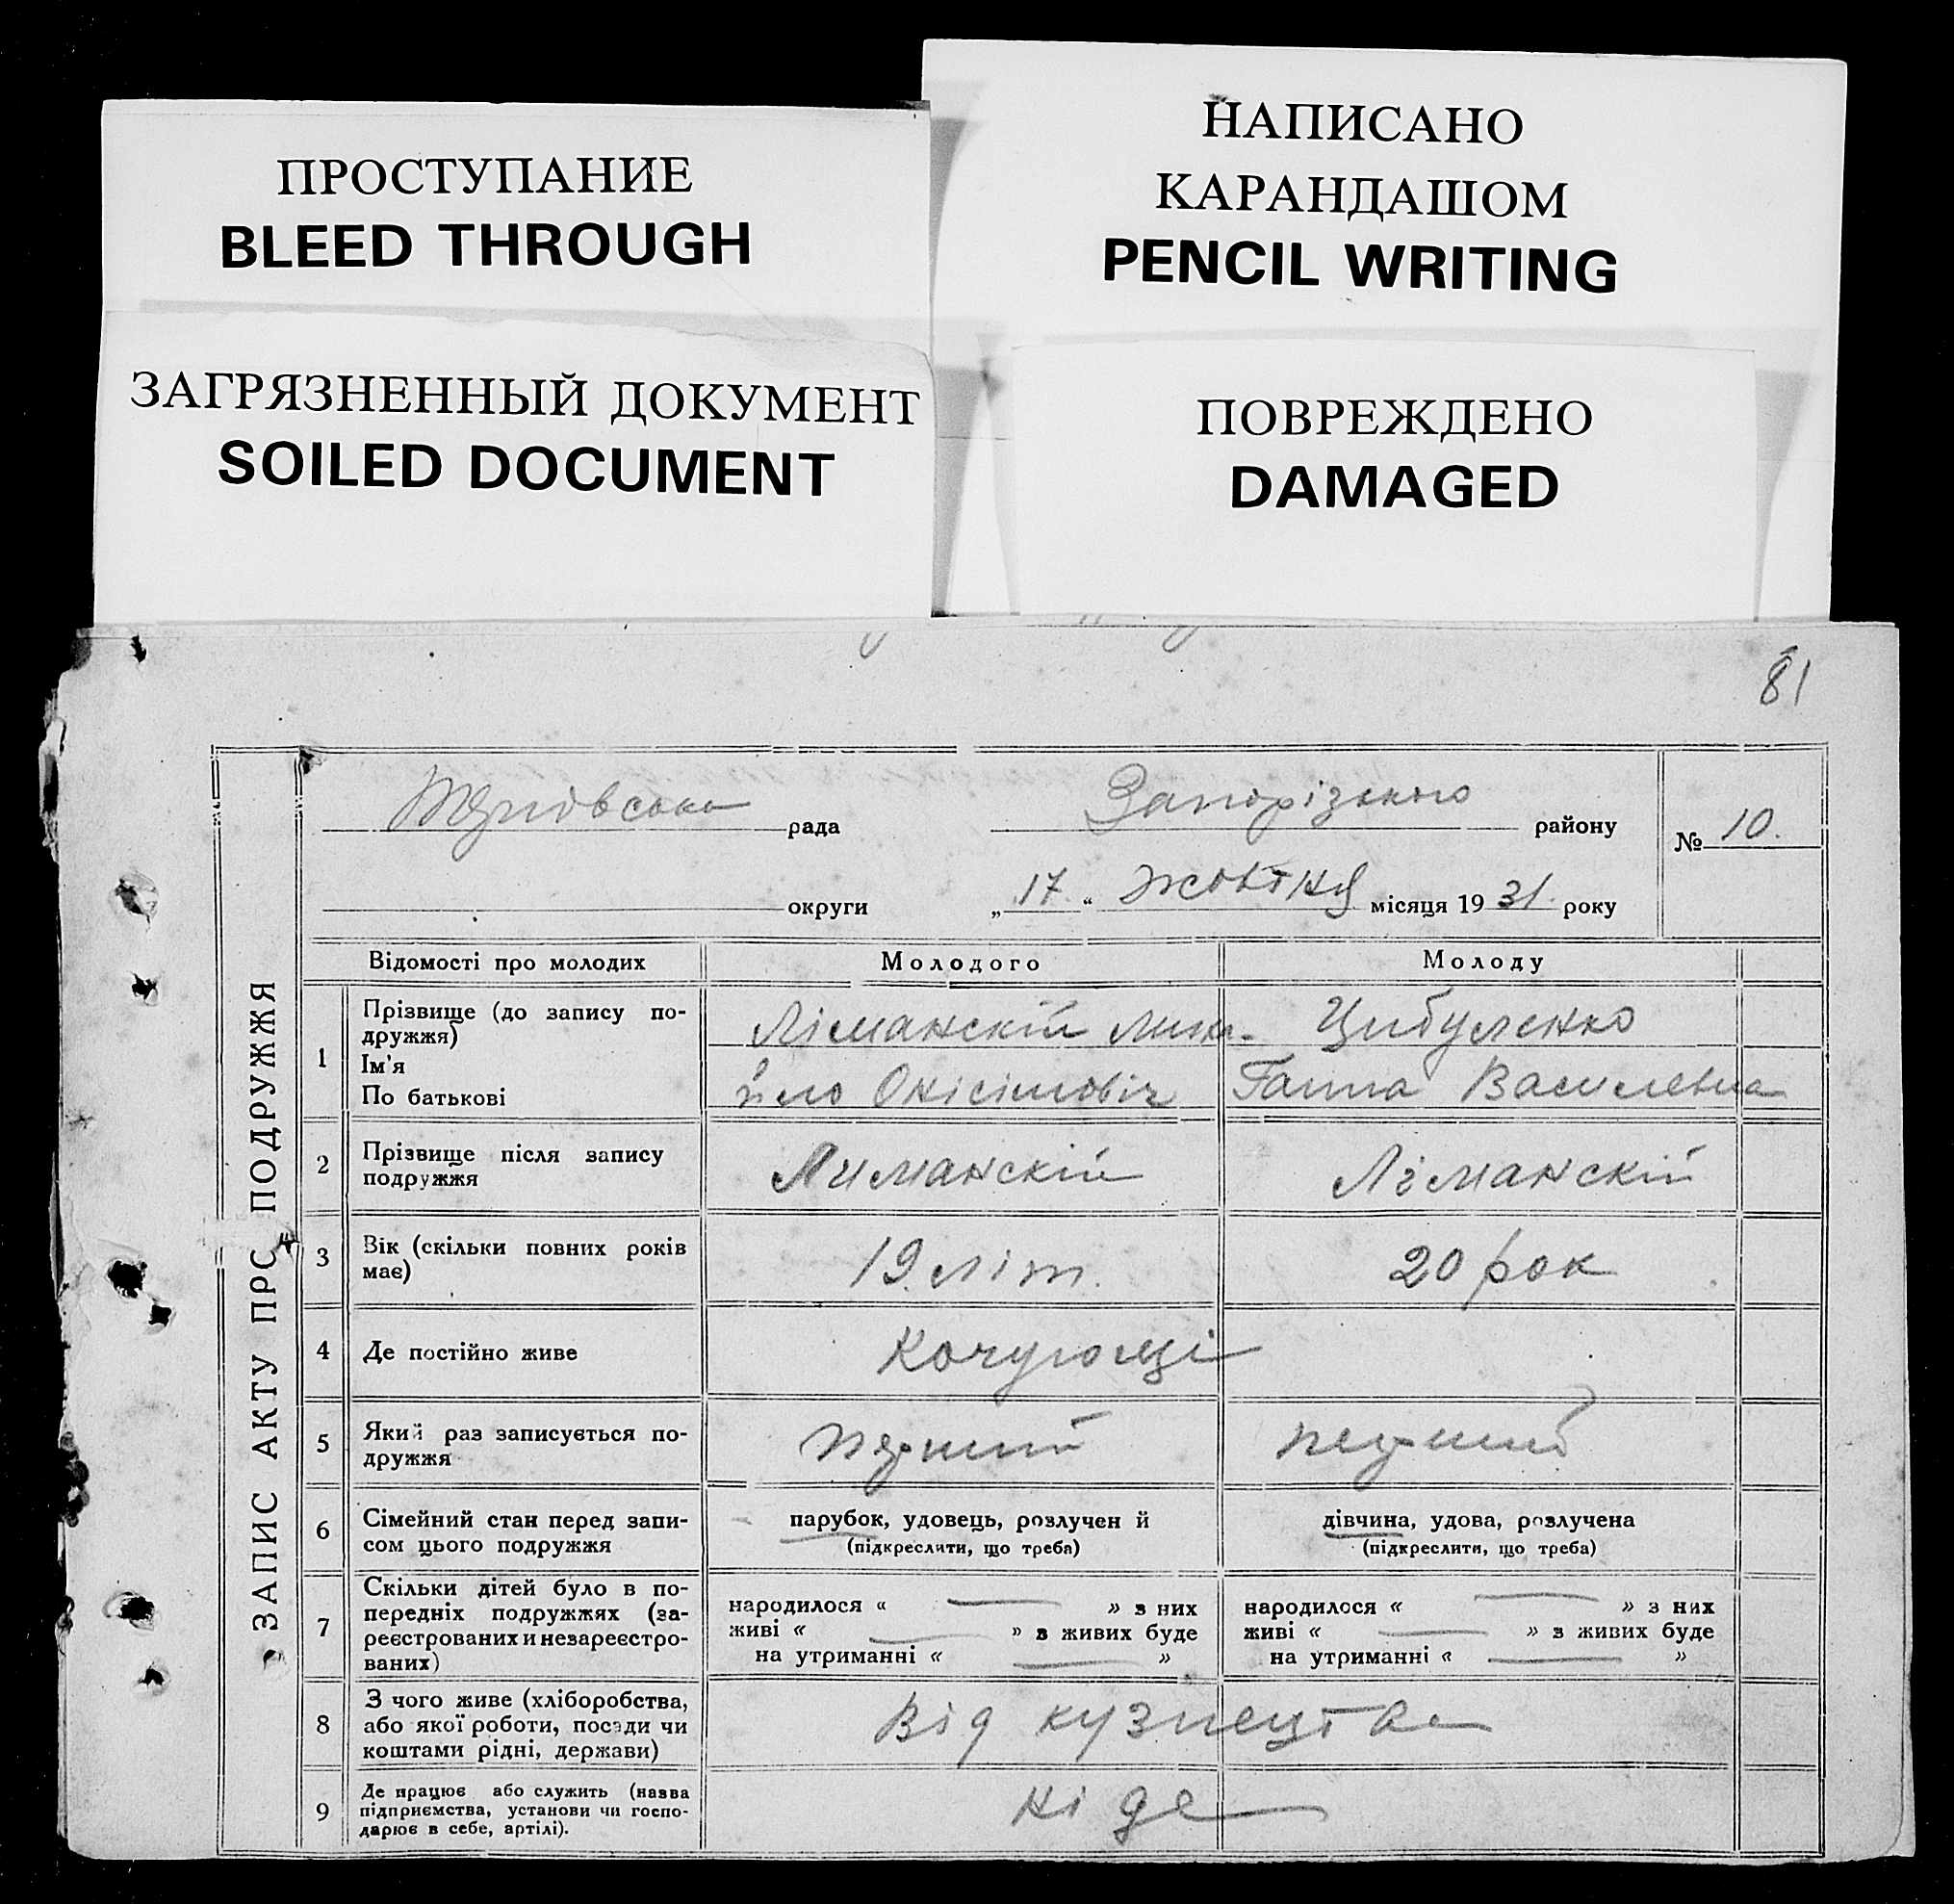 ПРОСТУПАНИЕ
BLEED THROUGH
НАПИСАНО
КАРАНДАШОМ
PENCIL WRITING
ЗАГРЯЗНЕННЫЙ ДОКУМЕНТ
SOILED DOCUMENT
ПОВРЕЖДЕНО
DAMAGED
81
ЗАПИС АКТУ ПРС ПОДРУЖЖЯ
рада Запорізького району
№ 10.
округи „17“ жовтня місяця 1931. року
Відомості про молодих Молодого Молоду
1 Прізвище (до запису по-
дружжя)
Ім'я
По батькові
Ліманскій Миха-
йло Онісімовіч
Цибуленко
Ганна Василевна
2 Прізвище після запису
подружжя
Лиманскій Ліманскій
3 Вік (скільки повних років
має)
19 літ. 20 рок
4 Де постійно живе
Кочующі
5 Який раз записується по-
дружжя
перший перший
6 Сімейний стан перед запи-
сом цього подружжя
парубок, удовець, розлучен й
(підкреслити, що треба)
дівчина, удова, розлучена
(підкреслити, що треба)
7 Скільки дітей було в по-
передніх подружжях (за-
реєстрованих и незареєстро-
ваних)
народилося « » з них
живі « » з живих буде
на утриманні « »
народилося « » з них
живі « » з живих буде
на утриманні « »
8 З чого живе (хліборобства,
або якої роботи, посади чи
коштами рідні, держави)
Від кузнецтва
9 Де працює або служить (назва
підприємства, установи чи госпо-
дарює в себе, артілі).
ні де